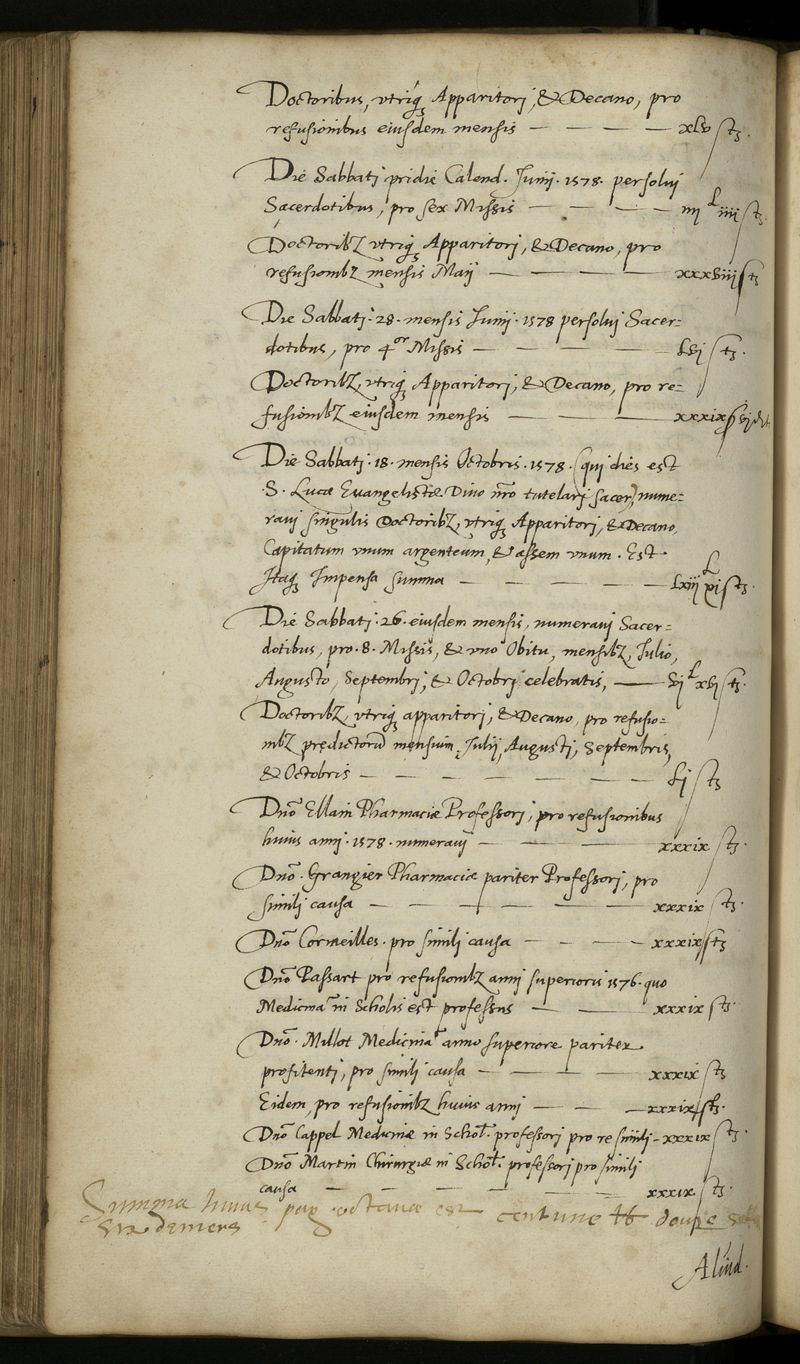 Doctoribus, vtriq; Apparitorj, & Decano, pro
refusionibus eiusdem mensis — — — — xlv ß.
Die Sabbatj pridie Calend. Junij. 1578. persoluj
Sacerdotibus, pro sex Missis — — — — iiij L iiij ß.
Doctorib; vtriq; Apparitorj, & Decano, pro
refusionib; mensis Maij — — — xxxviij ß
Die Sabbatj. 28. mensis Junij. 1578 persoluj Sacer=
dotibus, pro 4or Missis — — — — lvj ß.
Doctorib; vtriq; Apparitorj, & Decano, pro re=
fusionib; eiusdem mensis — — — xxxix ß vj d
Die Sabbatj. 18. mensis Octobris. 1578. (qui dies est
.S. Lucæ Euangelistæ Diuo nr̃o tutelarj sacer) nume=
rauj singulis Doctorib; vtriq; Apparitorj, & Decano,
Capitatum vnum argenteum, & assem vnum. Est
Itaq; Impensa summa — — — — — lxiij L xj ß.
Die Sabbatj. 26. eiusdem mensis, numerauj Sacer=
dotibus, pro. 8. Missis, & vno Obitu, mensib; Julio,
Augusto, Septembrj, & Octobrj celebratis, — vj L xvj ß.
Doctorib; vtriq; apparitorj, & Decano, pro refusio=
nib; prędictorū mensium, Julij, Augustj, Septembris,
& Octobris — — — — — — — lj ß
Dnõ Ellain Pharmaciæ Professorj, pro refusionibus
huius annj. 1578. numerauj — — — xxxix ß.
Dnõ. Grangier Pharmaciæ pariter Professorj, pro
similj causa — — — — — — xxxix ß.
Dnõ Cormeilles. pro similj causa — — — xxxix ß
Dnõ Passart pro refusionib; annj superioris 1576. quo
Medicinā in Scholis est professus — — xxxix ß.
Dnõ. Millot Medicinā anno superiore pariter
profitentj, pro similj causa — — — — xxxix ß
Eidem, pro refusionib; huius annj — — — xxxix ß.
Dnõ Cappel Medicinæ in Schol. professorj pro re similj - xxxix ß.
Dnõ Martin Chirurgiæ in Schol. professorj pro similj
causa — — — — — — — xxxix ß.
Summa huius pag. octauæ est cent une lb douze
six deniers
Aliud.